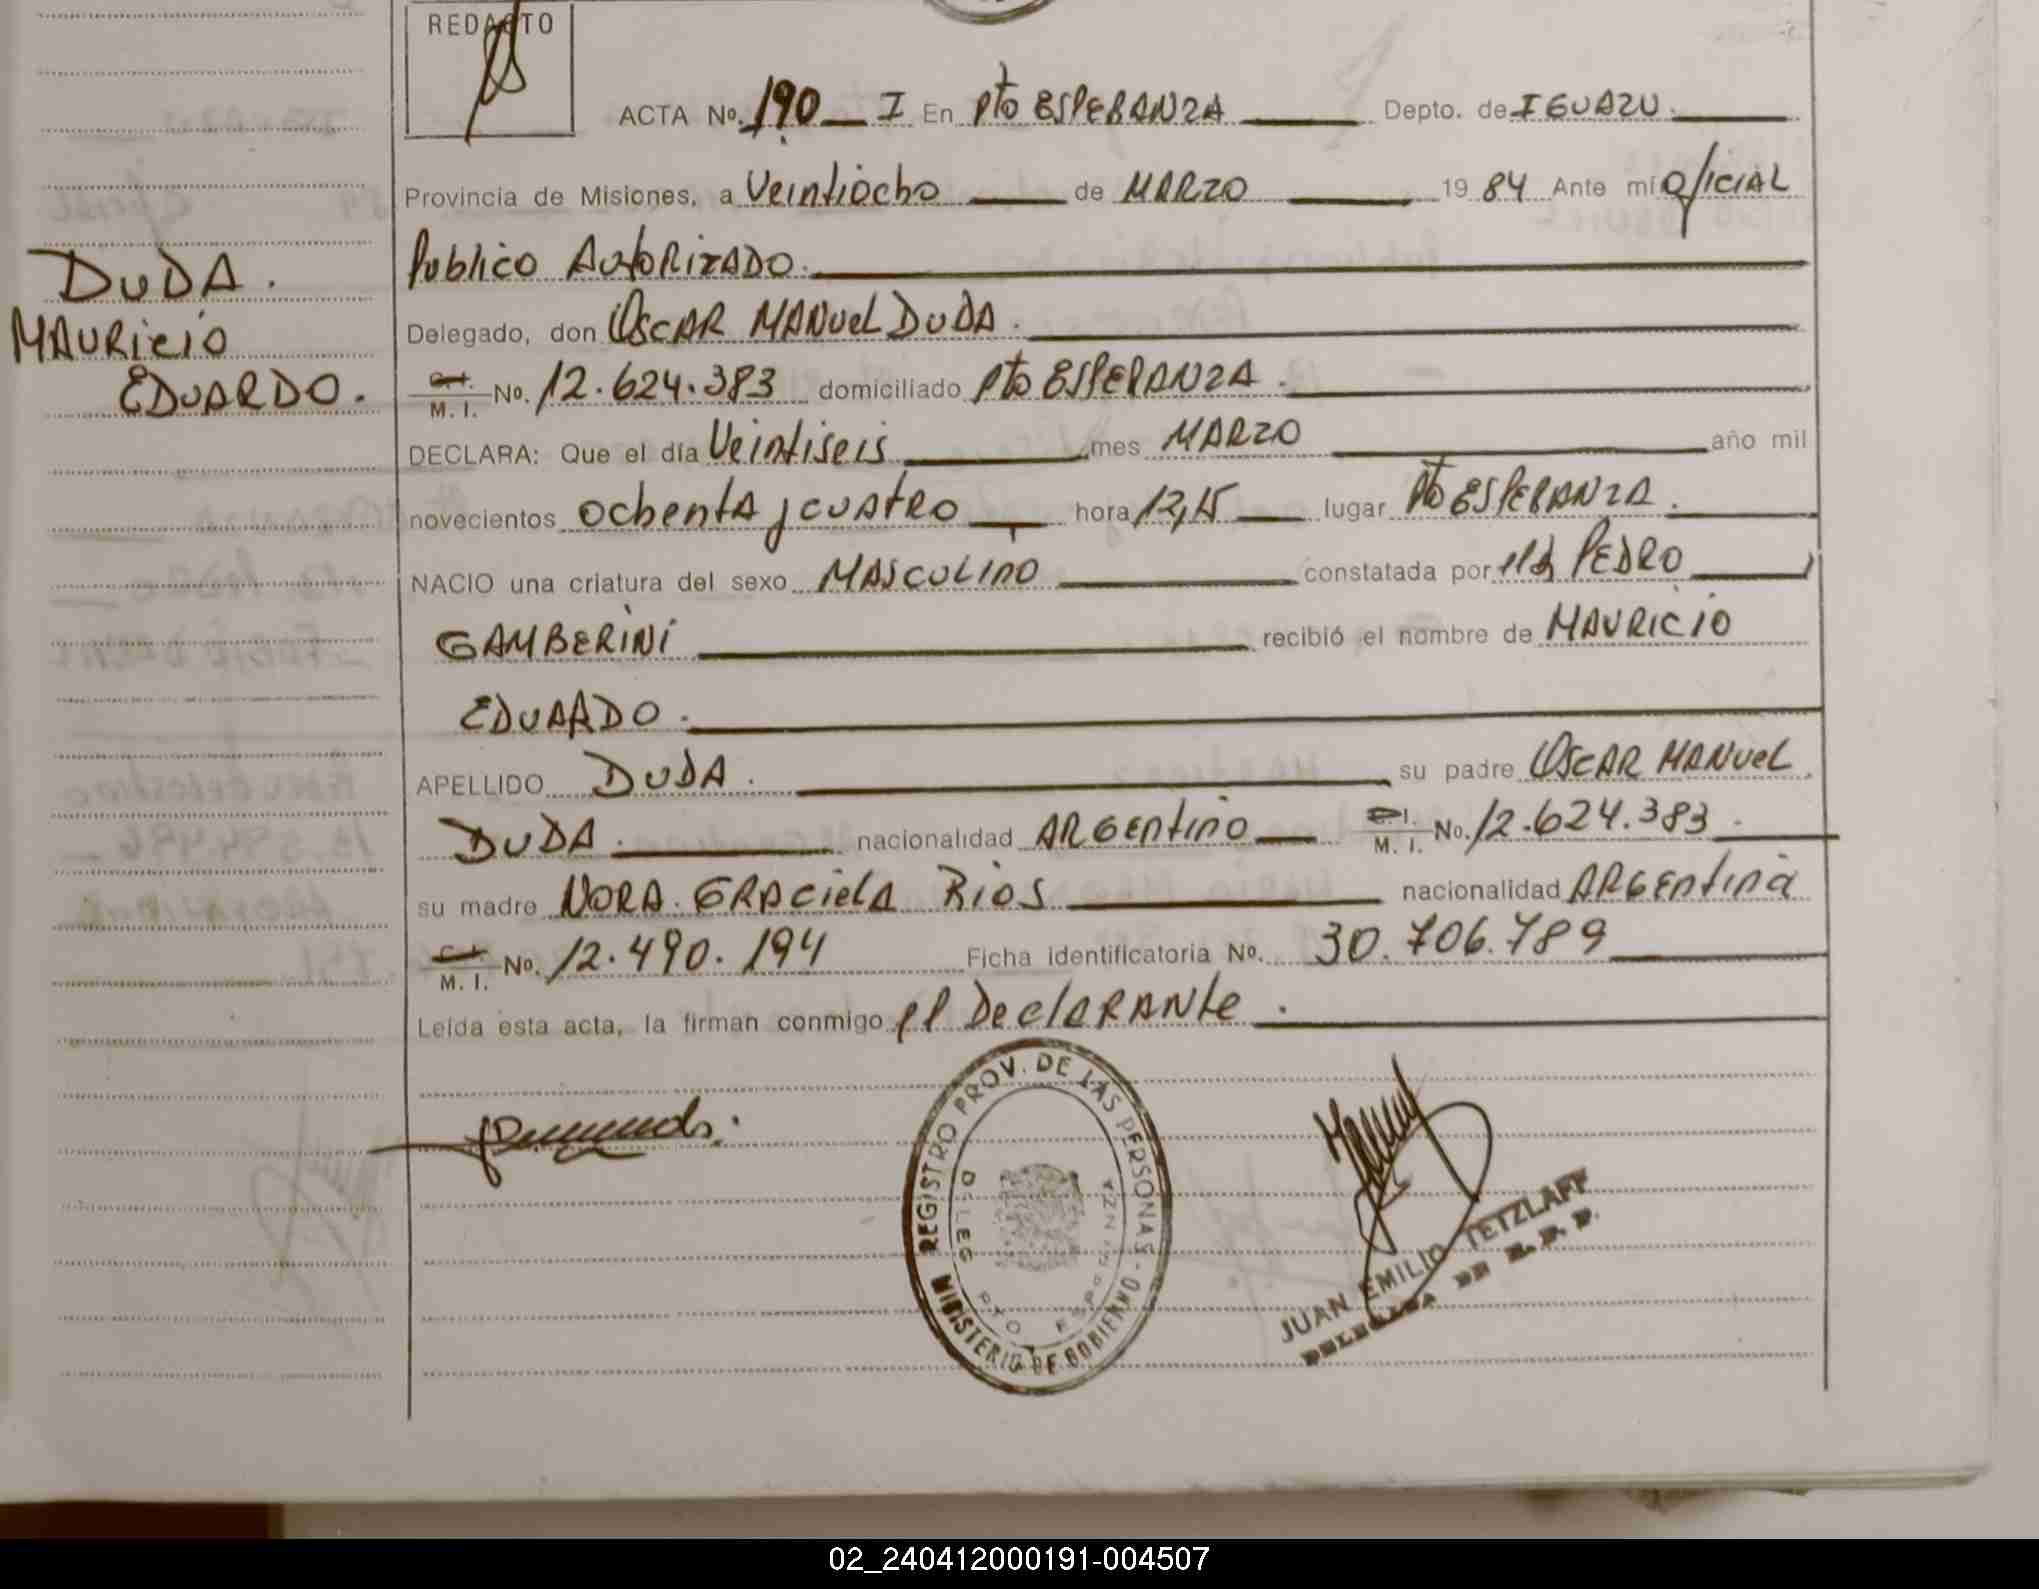 REDACTO
ACTA No. 190 I En Pto ESPERANZA Depto. de IGUAZU.
Provincia de Misiones, a Veintiocho de MARZO 19 84 Ante mí OFICIAL
Publico AutoRizADO.
DUDA.
MAURicio
EDUARDO.
Delegado, don OSCAR MANUEL DUDA.
C. I. M. I. No. 12.624.383 domiciliado Pto ESPERANZA.
DECLARA: Que el día Veintiseis mes MARZO año mil
novecientos ochentA y cuAtRo hora 12,15 lugar Pto ESPERANZA.
NACIO una criatura del sexo MASCULINO constatada por PEDRO
GAMBERINI recibió el nombre de MAURICIO
EDUARDO.
APELLIDO DUDA. su padre OSCAR MANUEL
DUDA. nacionalidad ARGENtiNO C. I. M. I. No. 12.624.383
su madre NORA. GRACIELA RIOS nacionalidad ARGENtiNA
C. I. M. I. No. 12.490.194 Ficha identificatoria No. 30.706.789
Leída esta acta, la firman conmigo el DeclARANte.
REGISTRO PROV. DE LAS PERSONAS - MINISTERIO DE GOBIERNO
DELEG PTO ESPERANZA
JUAN EMILIO TETZLAFF
DELEGADA DE R. P. P.
02_240412000191-004507